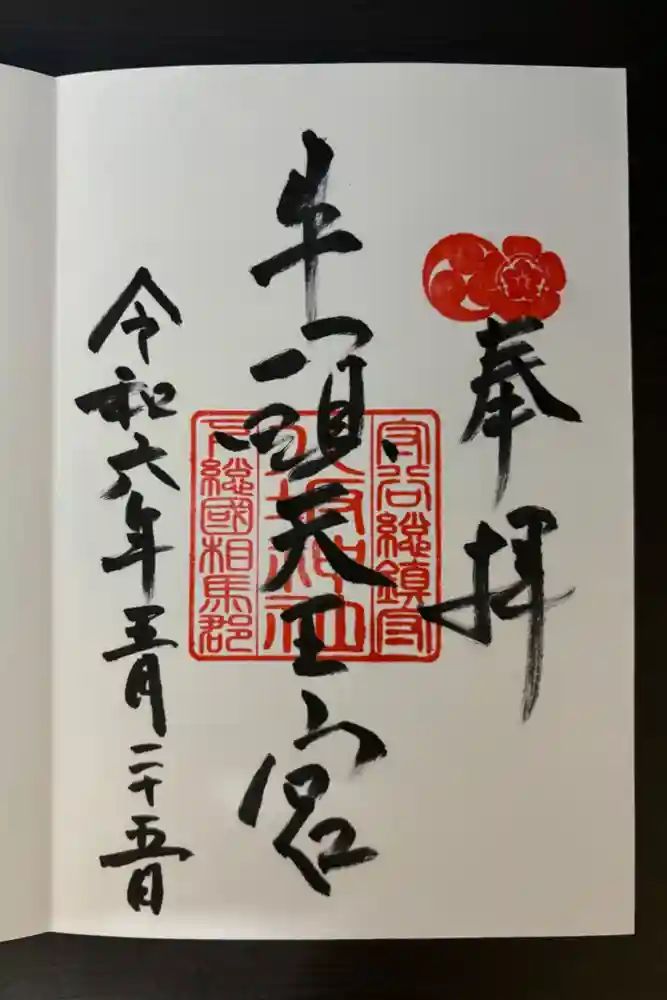 奉拝
守谷総鎮守
牛頭天王宮
八坂神社
下総國相馬郡
令和六年三月二十五日